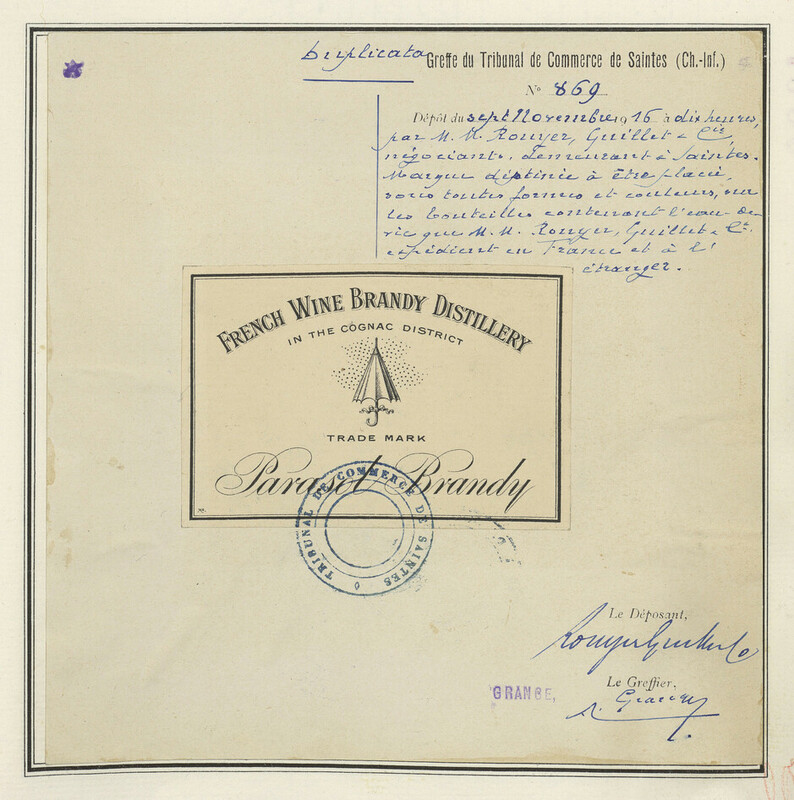 Duplicata
Greffe du Tribunal de Commerce de Saintes (Ch.-Inf.)
N° 869
Dépôt du sept Novembre 1916 à dix heures,
par M. M. Rouyer, Guillet & Cie,
négociants, demeurant à Saintes.
Marque destinée à être placée,
sous toutes formes et couleurs, sur
les bouteilles contenant l'eau-de-
vie que M. M. Rouyer, Guillet & Cie
expédient en France et à l'
étranger.
FRENCH WINE BRANDY DISTILLERY
IN THE COGNAC DISTRICT
TRADE MARK
Parasol Brandy
TRIBUNAL DE COMMERCE DE SAINTES
Le Déposant,
Rouyer Guillet & Co
Le Greffier,
GRANGE,